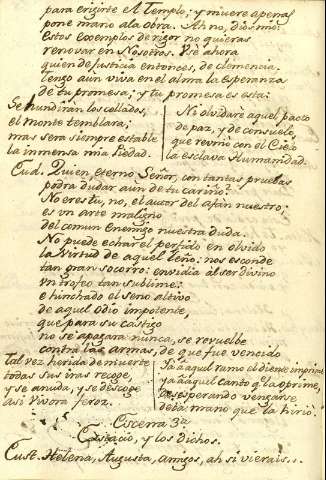 para erigirte el Templo; y muere apenas
pone mano ala obra. Ah no, dios mio:
Estos exemplos de rigor no quieras
renovar en Nosotros. Se ahora
quien de Justicia entonces, de clemencia.
Tengo aun viva en el alma la esperanza
de tu promesa; y tu promesa es esta:
Se hundiràn los collados,
el monte temblara;
mas sera siempre estable
la inmensa mia Piedad.
Ni olvidaré aquel pacto
de paz, y de consuelo,
que reunio con el Cielo
la esclava Humanidad.
Eud. Quien, eterno Señor, con tantas pruebas
podra dudar aun de tu cariño?
No eres tu, no, el autor del afán nuestro;
es un arte maligno
del comun Enemigo nuestra duda.
No puede echar el perfido en olvido
la Virtud de aquel Leño: nos esconde
tan gran socorro: envidia al ser divino
un trofeo tan sublime:
e hinchado el seno altivo
de aquel odio impotente,
que para su castigo
no se apagara nunca, se revuelbe
contra las armas, de que fue vencido
Tal vez herida de muerte
todas sus iras recoge,
y se anuda, y se descoge
asi Vivora feroz.
Ya aquel ramo el diente imprime,
ya aquel canto q.e la oprime,
Desesperando vengarse
dela mano que la hirió.
Escena 3.a
Eustacio, y los dichos.
Eust. Helena, Augusta, amigos, ah si vierais...